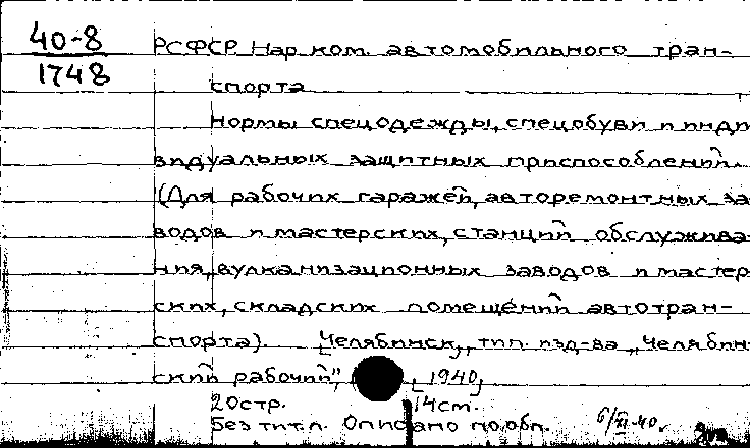 40-8
1748
РСФСР Нар. ком. автомобильного тран-
спорта
Нормы спецодежды, спецобуви и инди
видуальных защитных приспособлений.
(Для рабочих гаражей, авторемонтных за
водов и мастерских, станций обслужива
ния, вулканизационных заводов и мастер
ских, складских помещений автотран-
спорта). [Челябинск], тип. изд-ва „Челябин
ский рабочий", [1940]
20стр. 14см.
Без тит. л. Описано по обл. 6/VI-40.